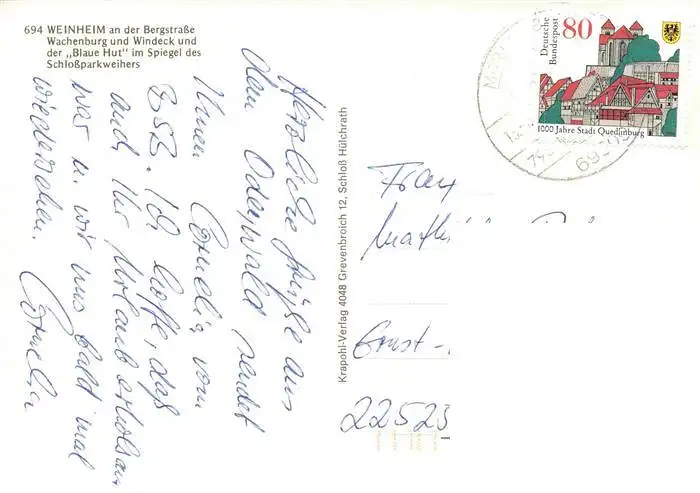 694 WEINHEIM an der Bergstraße
Wachenburg und Windeck und
der „Blaue Hut" im Spiegel des
Schloßparkweihers
Herzliche Grüße aus
dem Odenwald sendet
Ihnen Cornelia vom
BSB. Ich hoffe, daß
auch Ihr Urlaub erholsam
war u. wir uns bald mal
wiedersehen. Cornelia
Krapohl-Verlag 4048 Grevenbroich 12, Schloß Hülchrath
Deutsche
Bundespost
80
1000 Jahre Stadt Quedlinburg
Frau
Ernst-
22523